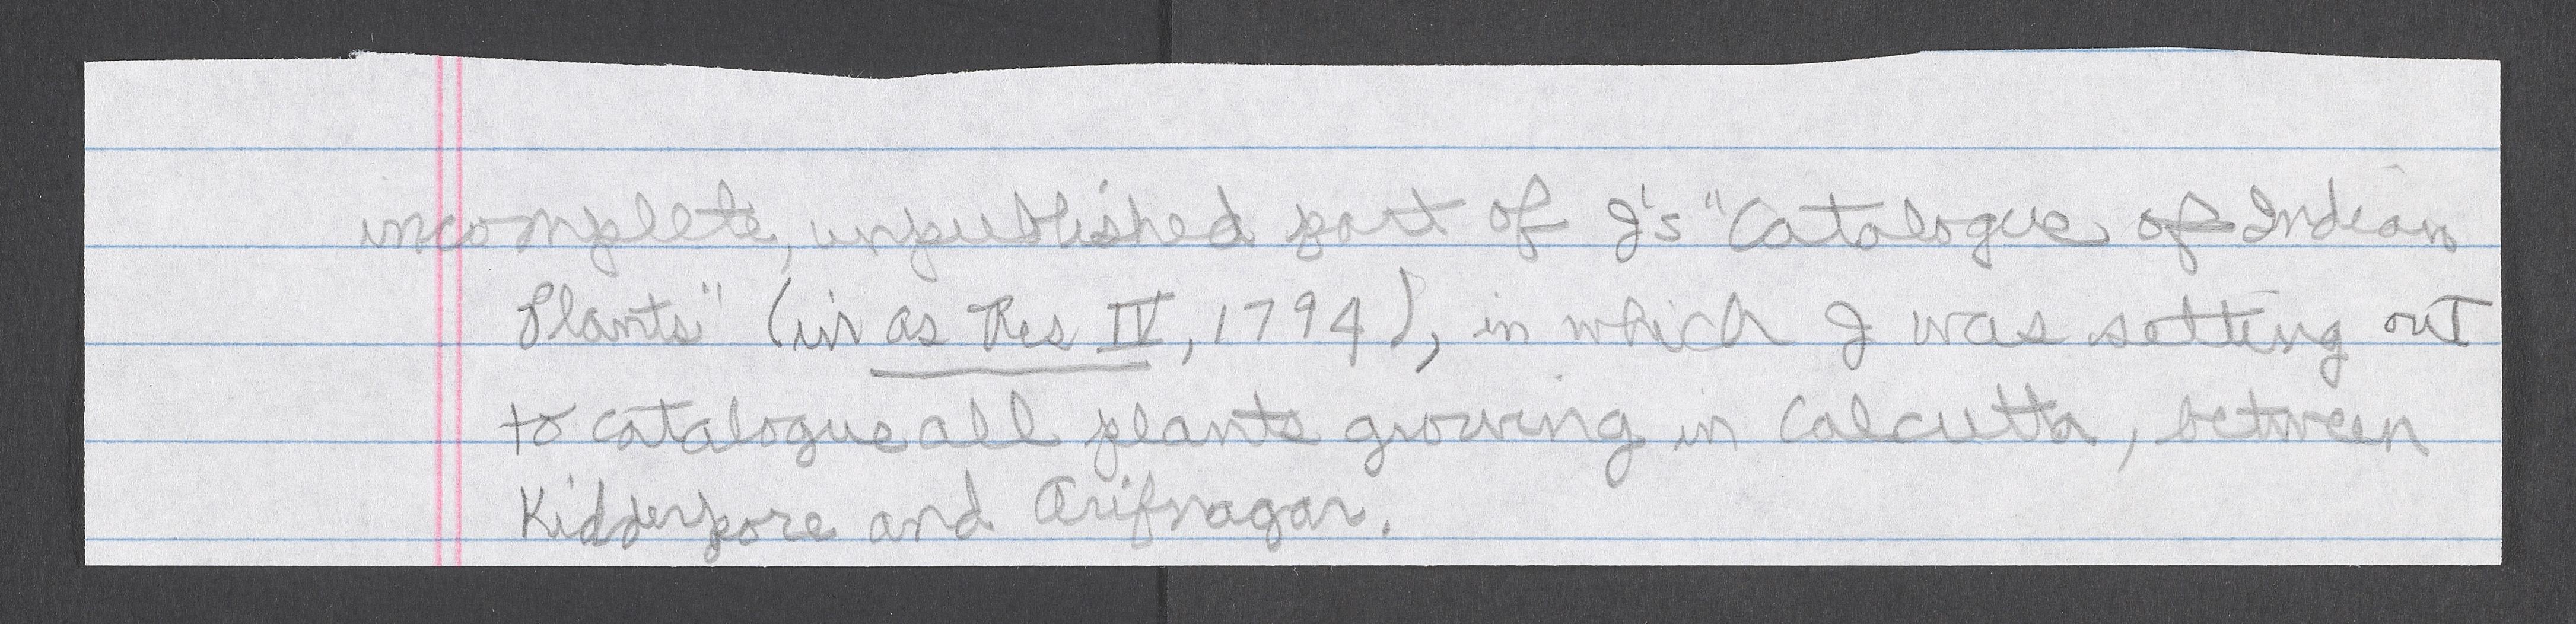 incomplete, unpublished part of J's "Catalogue of Indian
Plants" (in as Res IV, 1794), in which J was setting out
to catalogue all plants growing in Calcutta, between
Kidderpore and Arifnagar.